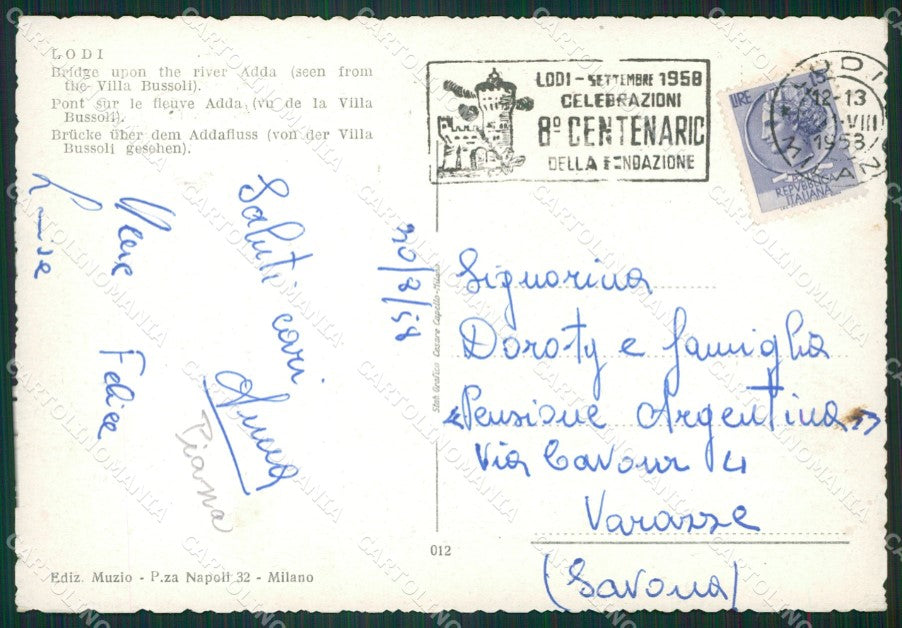 LODI
Bridge upon the river Adda (seen from
the Villa Bussoli).
Pont sur le fleuve Adda (vu de la Villa
Bussoli).
Brücke über dem Addafluss (von der Villa
Bussoli gesehen).
LODI - SETTEMBRE 1958
CELEBRAZIONI
8º CENTENARIO
DELLA FONDAZIONE
LIRE 15
REPVBBLICA
ITALIANA
LODI
12-13
VIII
1958
MILANO
30/8/58
Saluti cari
Anna
Piarna
Felice
Luisa
Signorina
Doroty e famiglia
"Pensione Argentina"
Via Cavour 4
Varazze
(Savona)
Stab. Grafico Cesare Capello - Milano
012
Ediz. Muzio - P.za Napoli 32 - Milano
CARTOLINOMANIA